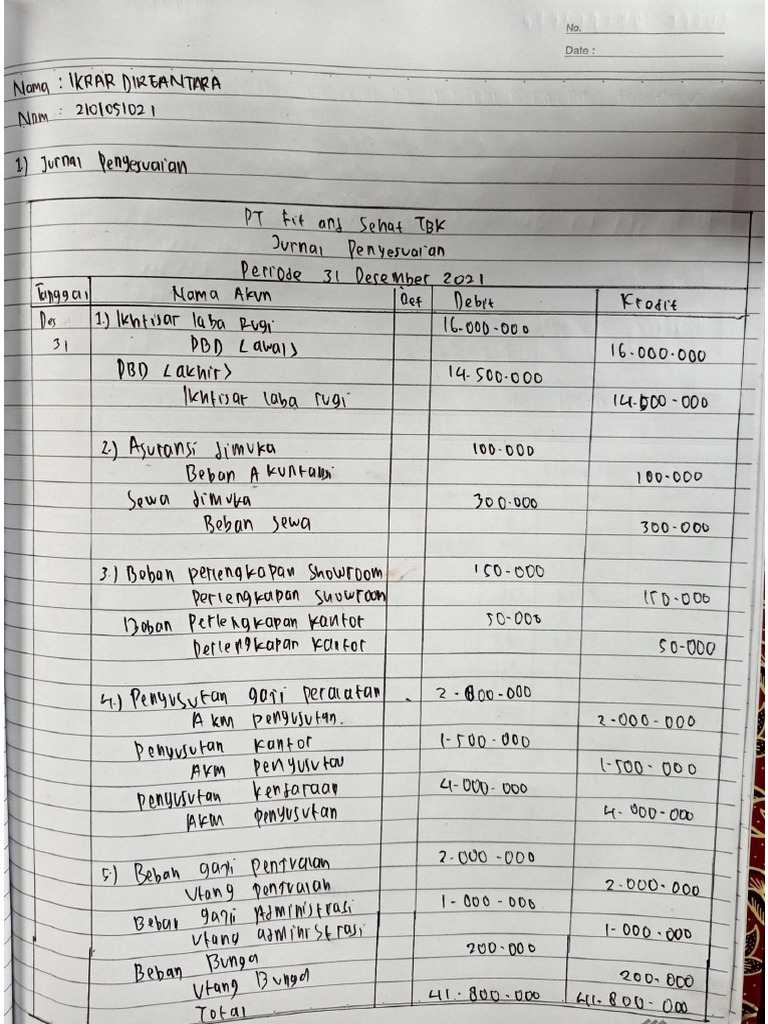 No.
Date :
Nama : IKRAR DIRGANTARA
Npm : 2101051021
1) Jurnal Penyesuaian
PT Fit and Sehat TBK
Jurnal Penyesuaian
Periode 31 Desember 2021
Tanggal Nama Akun Ref Debit Kredit
Des 1.) Ikhtisar laba rugi 16.000.000
31 DBD (awal) 16.000.000
DBD (akhir) 14.500.000
Ikhtisar laba rugi 14.500.000
2.) Asuransi dimuka 100.000
Beban Akuntansi 100.000
Sewa dimuka 300.000
Beban sewa 300.000
3.) Beban perlengkapan showroom 150.000
Perlengkapan showroom 150.000
Beban Perlengkapan kantor 50.000
Perlengkapan kantor 50.000
4.) Penyusutan gaji peralatan 2.000.000
AKM penyusutan. 2.000.000
Penyusutan kantor 1.500.000
AKM penyusutan 1.500.000
penyusutan kendaraan 4.000.000
AKM penyusutan 4.000.000
5.) Beban gaji penjualan 2.000.000
Utang penjualan 2.000.000
Beban gaji Administrasi 1.000.000
Utang administrasi 1.000.000
Beban Bunga 200.000
Utang Bunga 200.000
Total 41.800.000 41.800.000